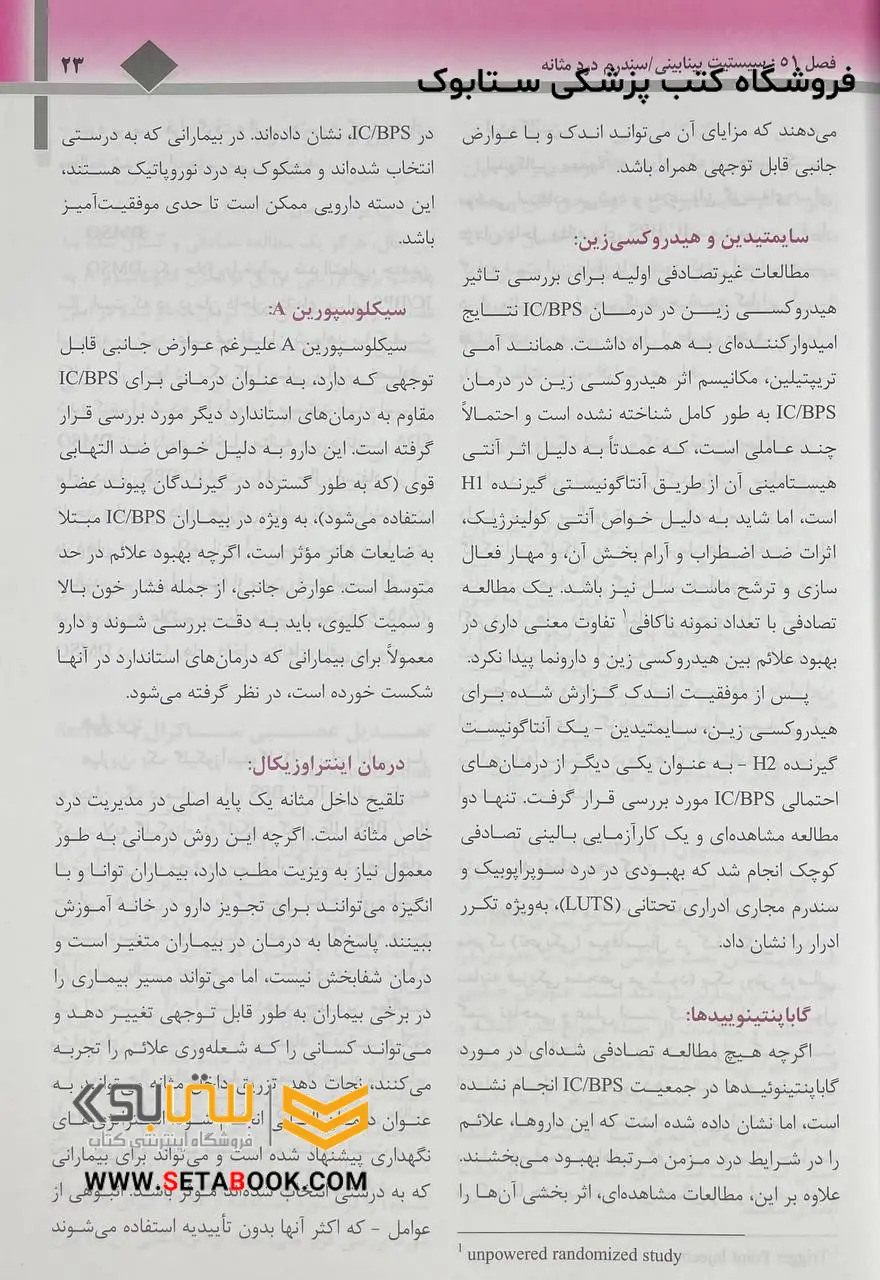 فصل ۵۱ : سیستیت بینابینی/سندرم درد مثانه
۲۳
فروشگاه کتب پزشکی ستابوک
می‌دهند که مزایای آن می‌تواند اندک و با عوارض
جانبی قابل توجهی همراه باشد.
سایمتیدین و هیدروکسی‌زین:
مطالعات غیرتصادفی اولیه برای بررسی تاثیر
هیدروکسی زین در درمان IC/BPS نتایج
امیدوارکننده‌ای به همراه داشت. همانند آمی
تریپتیلین، مکانیسم اثر هیدروکسی زین در درمان
IC/BPS به طور کامل شناخته نشده است و احتمالاً
چند عاملی است، که عمدتاً به دلیل اثر آنتی
هیستامینی آن از طریق آنتاگونیستی گیرنده H1
است، اما شاید به دلیل خواص آنتی کولینرژیک،
اثرات ضد اضطراب و آرام بخش آن، و مهار فعال
سازی و ترشح ماست سل نیز باشد. یک مطالعه
تصادفی با تعداد نمونه ناکافی¹ تفاوت معنی داری در
بهبود علائم بین هیدروکسی زین و دارونما پیدا نکرد.
پس از موفقیت اندک گزارش شده برای
هیدروکسی زین، سایمتیدین – یک آنتاگونیست
گیرنده H2 – به عنوان یکی دیگر از درمان‌های
احتمالی IC/BPS مورد بررسی قرار گرفت. تنها دو
مطالعه مشاهده‌ای و یک کارآزمایی بالینی تصادفی
کوچک انجام شد که بهبودی در درد سوپراپوبیک و
سندرم مجاری ادراری تحتانی (LUTS)، به‌ویژه تکرر
ادرار را نشان داد.
گاباپنتینوییدها:
اگرچه هیچ مطالعه تصادفی شده‌ای در مورد
گاباپنتینوئیدها در جمعیت IC/BPS انجام نشده
است، اما نشان داده شده است که این داروها، علائم
را در شرایط درد مزمن مرتبط بهبود می‌بخشند.
علاوه بر این، مطالعات مشاهده‌ای، اثر بخشی آن‌ها را
¹ unpowered randomized study
در IC/BPS، نشان داده‌اند. در بیمارانی که به درستی
انتخاب شده‌اند و مشکوک به درد نوروپاتیک هستند،
این دسته دارویی ممکن است تا حدی موفقیت‌آمیز
باشد.
سیکلوسپورین A:
سیکلوسپورین A علیرغم عوارض جانبی قابل
توجهی که دارد، به عنوان درمانی برای IC/BPS
مقاوم به درمان‌های استاندارد دیگر مورد بررسی قرار
گرفته است. این دارو به دلیل خواص ضد التهابی
قوی (که به طور گسترده در گیرندگان پیوند عضو
استفاده می‌شود)، به ویژه در بیماران IC/BPS مبتلا
به ضایعات هانر مؤثر است، اگرچه بهبود علائم در حد
متوسط است. عوارض جانبی، از جمله فشار خون بالا
و سمیت کلیوی، باید به دقت بررسی شوند و دارو
معمولاً برای بیمارانی که درمان‌های استاندارد در آنها
شکست خورده است، در نظر گرفته می‌شود.
درمان اینتراوزیکال:
تلقیح داخل مثانه یک پایه اصلی در مدیریت درد
خاص مثانه است. اگرچه این روش درمانی به طور
معمول نیاز به ویزیت مطب دارد، بیماران توانا و با
انگیزه می‌توانند برای تجویز دارو در خانه آموزش
ببینند. پاسخ‌ها به درمان در بیماران متغیر است و
درمان شفابخش نیست، اما می‌تواند مسیر بیماری را
در برخی بیماران به طور قابل توجهی تغییر دهد و
می‌تواند کسانی را که شعله‌وری علائم را تجربه
می‌کنند، نجات دهد. تزریق داخل مثانه می‌تواند به
عنوان
نگهداری پیشنهاد شده است و می‌تواند برای بیمارانی
که به درستی انتخاب شده‌اند مؤثر باشد. انبوهی از
عوامل – که اکثر آنها بدون تأییدیه استفاده می‌شوند
ستابوک
فروشگاه اینترنتی کتاب
WWW.SETABOOK.COM